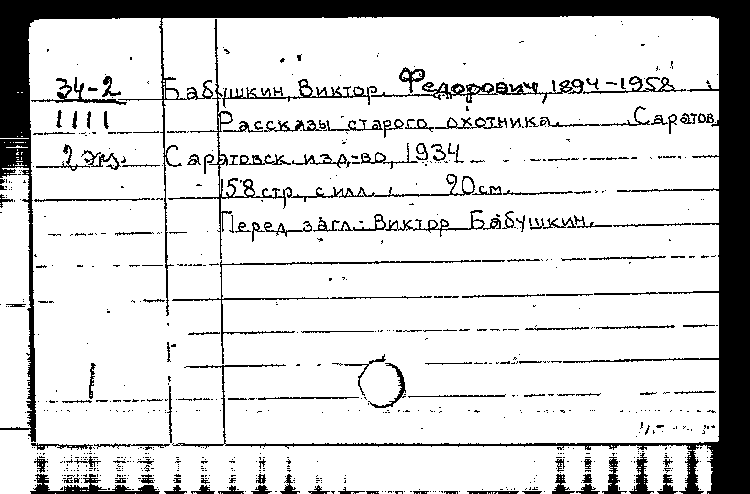 34-2 Бабушкин, Виктор Федорович, 1894-1958
1111 Рассказы старого охотника. Саратов,
2 экз. Саратовск. изд-во, 1934
158 стр., с илл. 20 см.
Перед загл.: Виктор Бабушкин.